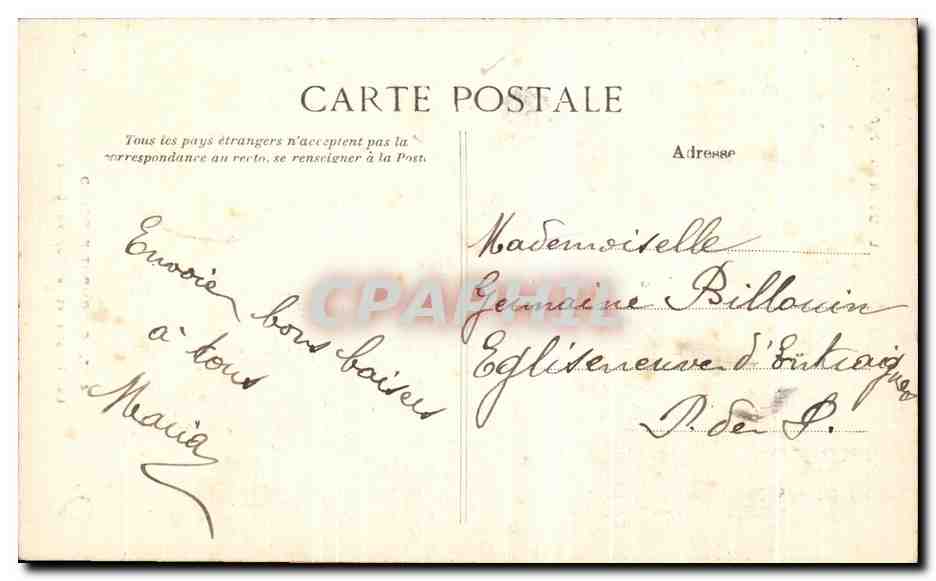 CARTE POSTALE
Tous les pays étrangers n'acceptent pas la
correspondance au recto, se renseigner à la Poste.
Adresse
Envoie bons baisers
à tous
Maria
Mademoiselle
Germaine Billouin
Egliseneuve d'Entraigues
P. de D.
CPAPHIL